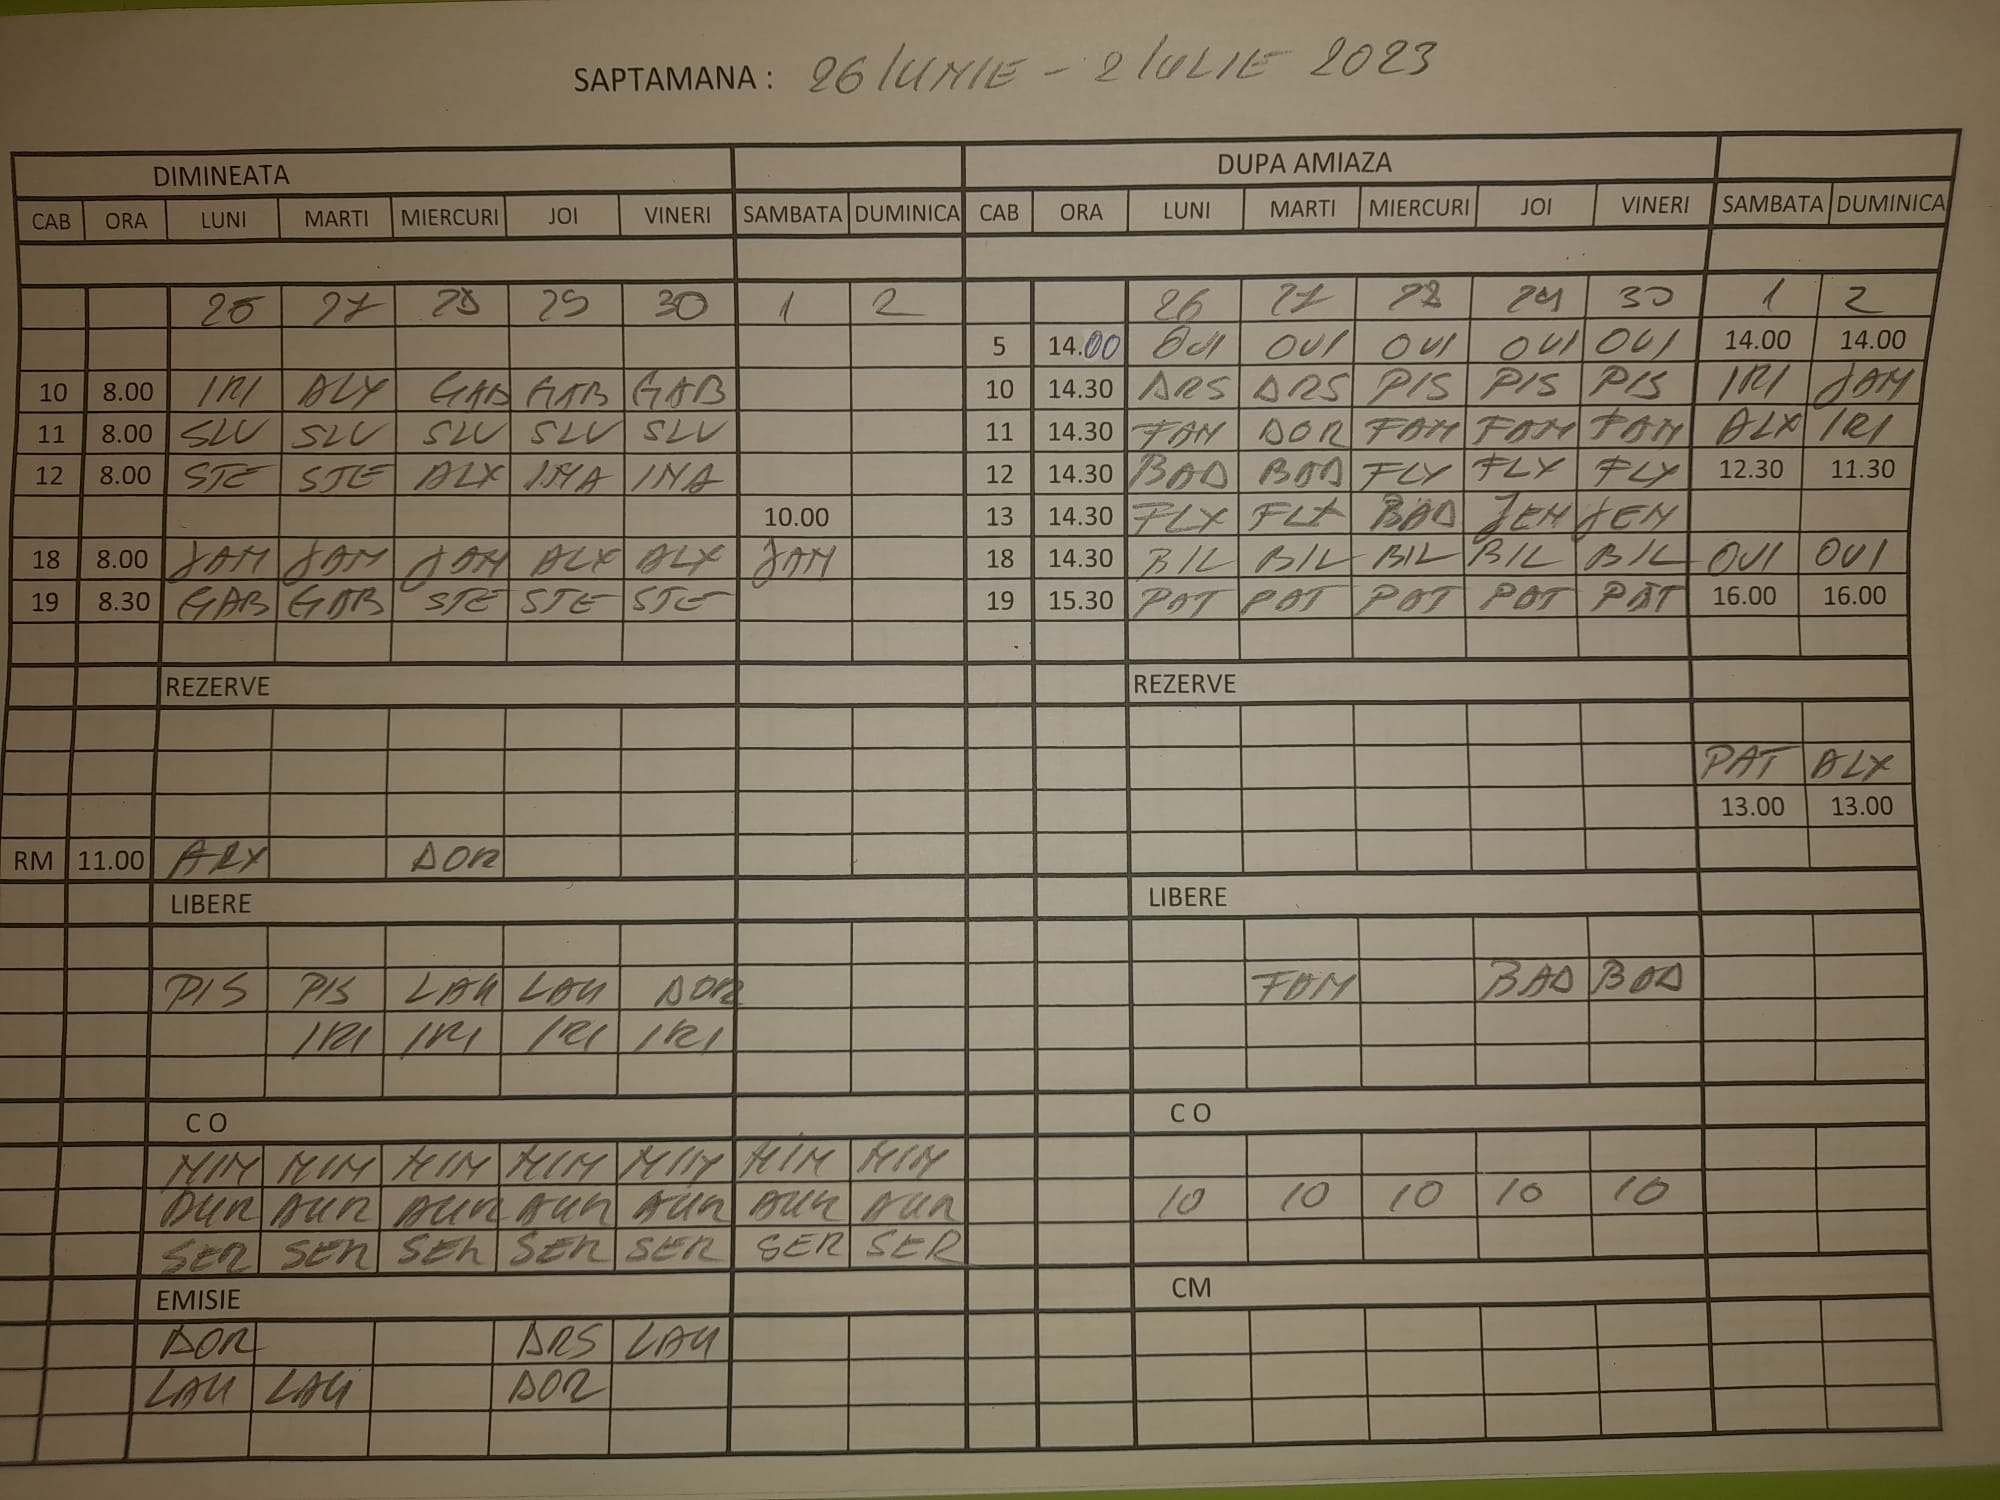 SAPTAMANA : 26 IUNIE - 2 IULIE 2023
DIMINEATA DUPA AMIAZA
CAB ORA LUNI MARTI MIERCURI JOI VINERI SAMBATA DUMINICA CAB ORA LUNI MARTI MIERCURI JOI VINERI SAMBATA DUMINICA
26 27 28 29 30 1 2 26 27 28 29 30 1 2
5 14.00 OVI OVI OVI OVI OVI 14.00 14.00
10 8.00 IRI ALX GAB GAB GAB 10 14.30 DRS DRS PIS PIS PIS IRI JAM
11 8.00 SLV SLV SLV SLV SLV 11 14.30 FAM DOR FAM FAM FAM ALX IRI
12 8.00 STE STE ALX INA INA 12 14.30 BAD BAD FLX FLX FLX 12.30 11.30
10.00 13 14.30 FLX FLX BAD JEM JEM
18 8.00 JAM JAM JAM ALX ALX JAM 18 14.30 BIL BIL BIL BIL BIL OVI OVI
19 8.30 GAB GAB STE STE STE 19 15.30 PAT PAT PAT PAT PAT 16.00 16.00
REZERVE REZERVE
PAT ALX
13.00 13.00
RM 11.00 DOR
LIBERE LIBERE
PIS PIS LAU LAU DOR FAM BAD BAD
IRI IRI IRI IRI
C O C O
MIM MIM MIM MIM MIM MIM MIM
AUR AUR AUR AUR AUR AUR AUR 10 10 10 10 10
SER SER SER SER SER SER SER
EMISIE CM
DOR DRS LAU
LAU LAU DOR